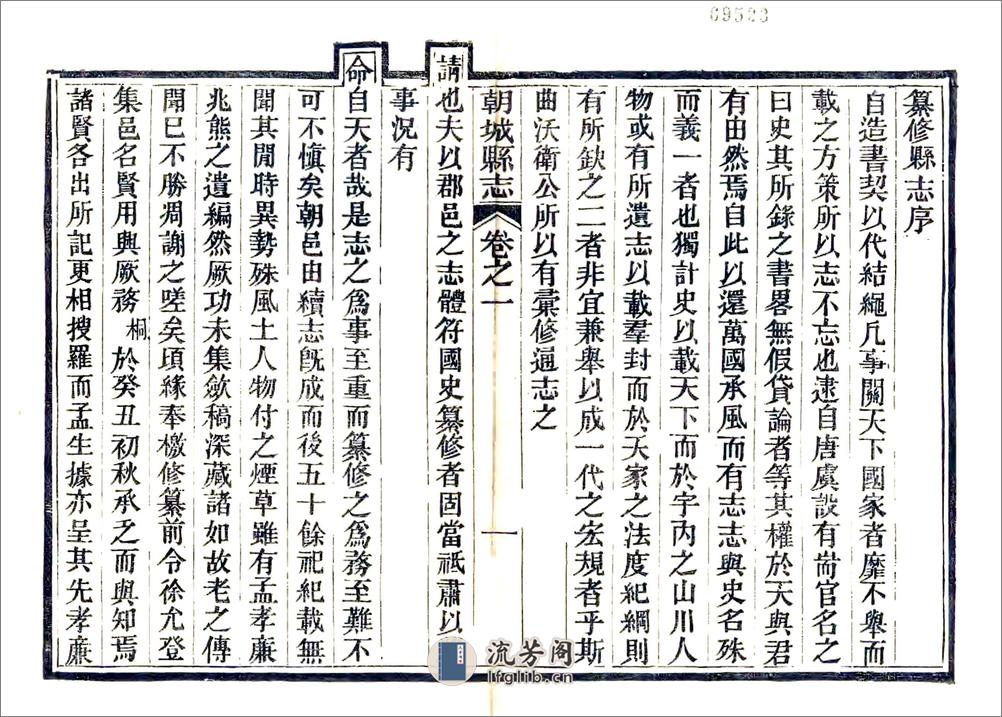 69523
纂修縣志序
自造書契以代結繩凡事關天下國家者靡不舉而
載之方策所以志不忘也逮自唐虞設有尚官名之
曰史其所錄之書畧無假貸論者等其權於天與君
有由然焉自此以還萬國承風而有志志與史名殊
而義一者也獨計史以載天下而於宇內之山川人
物或有所遺志以載羣封而於天家之法度紀綱則
有所欽之二者非宜兼舉以成一代之宏規者乎斯
曲沃衛公所以有彙修通志之
朝城縣志 卷之一 一
請也夫以郡邑之志體符國史纂修者固當祗肅以
事況有
命自天者哉是志之為事至重而纂修之為務至難不
可不慎矣朝邑由續志既成而後五十餘祀紀載無
聞其間時異勢殊風土人物付之煙草雖有孟孝廉
兆熊之遺編然厥功未集歛稿深藏諸如故老之傳
聞已不勝凋謝之嗟矣頃緣奉檄修纂前令徐允登
集邑名賢用興厥務桐於癸丑初秋承乏而與知焉
諸賢各出所記更相搜羅而孟生據亦呈其先孝廉
流芳阁
lfglib.cn